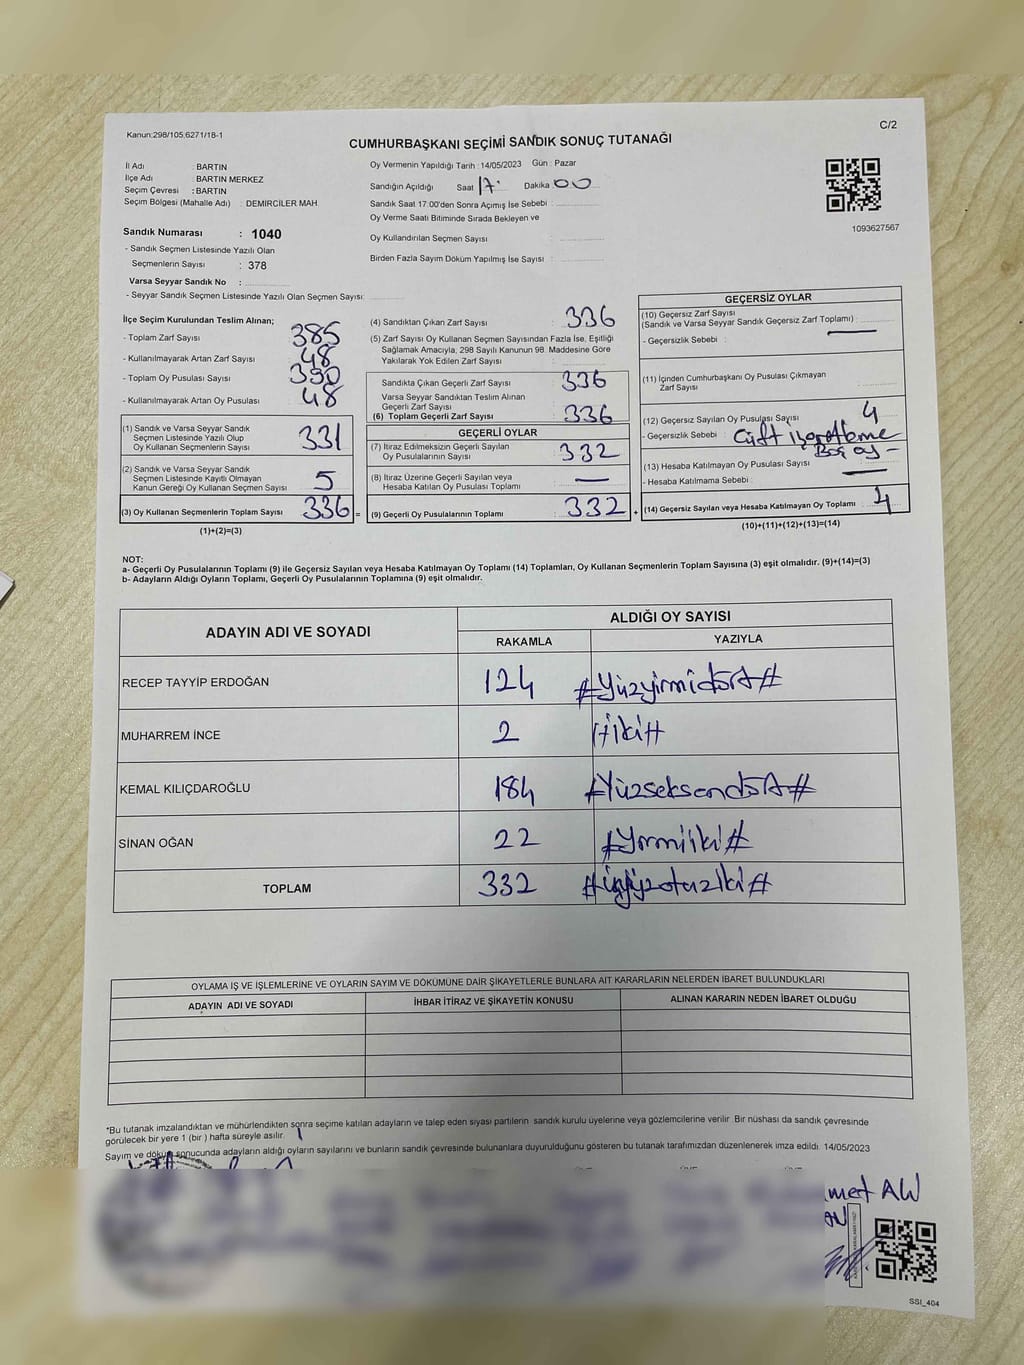 Kanun:298/105;6271/18-1
C/2
CUMHURBAŞKANI SEÇİMİ SANDIK SONUÇ TUTANAĞI
İl Adı : BARTIN
İlçe Adı : BARTIN MERKEZ
Seçim Çevresi : BARTIN
Seçim Bölgesi (Mahalle Adı) : DEMİRCİLER MAH.
Oy Vermenin Yapıldığı Tarih : 14/05/2023 Gün : Pazar
Sandığın Açıldığı Saat 17 Dakika 00
Sandık Saat 17:00'den Sonra Açımış İse Sebebi :
Oy Verme Saati Bitiminde Sırada Bekleyen ve
Oy Kullandırılan Seçmen Sayısı :
Birden Fazla Sayım Döküm Yapılmış İse Sayısı :
1093627567
Sandık Numarası : 1040
- Sandık Seçmen Listesinde Yazılı Olan
Seçmenlerin Sayısı : 378
Varsa Seyyar Sandık No :
- Seyyar Sandık Seçmen Listesinde Yazılı Olan Seçmen Sayısı:
İlçe Seçim Kurulundan Teslim Alınan;
- Toplam Zarf Sayısı 385
- Kullanılmayarak Artan Zarf Sayısı 48
- Toplam Oy Pusulası Sayısı 390
- Kullanılmayarak Artan Oy Pusulası 48
(1) Sandık ve Varsa Seyyar Sandık
Seçmen Listesinde Yazılı Olup
Oy Kullanan Seçmenlerin Sayısı 331
(2) Sandık ve Varsa Seyyar Sandık
Seçmen Listesinde Kayıtlı Olmayan
Kanun Gereği Oy Kullanan Seçmen Sayısı 5
(3) Oy Kullanan Seçmenlerin Toplam Sayısı 336 =
(1)+(2)=(3)
(4) Sandıktan Çıkan Zarf Sayısı : 336
(5) Zarf Sayısı Oy Kullanan Seçmen Sayısından Fazla İse, Eşitliği
Sağlamak Amacıyla; 298 Sayılı Kanunun 98. Maddesine Göre
Yakılarak Yok Edilen Zarf Sayısı :
Sandıkta Çıkan Geçerli Zarf Sayısı : 336
Varsa Seyyar Sandıktan Teslim Alınan
Geçerli Zarf Sayısı
(6) Toplam Geçerli Zarf Sayısı : 336
GEÇERLİ OYLAR
(7) İtiraz Edilmeksizin Geçerli Sayılan
Oy Pusulalarının Sayısı : 332
(8) İtiraz Üzerine Geçerli Sayılan veya
Hesaba Katılan Oy Pusulaları Toplamı : —
(9) Geçerli Oy Pusulalarının Toplamı : 332 +
GEÇERSİZ OYLAR
(10) Geçersiz Zarf Sayısı
(Sandık ve Varsa Seyyar Sandık Geçersiz Zarf Toplamı) : —
- Geçersizlik Sebebi :
(11) İçinden Cumhurbaşkanı Oy Pusulası Çıkmayan
Zarf Sayısı :
(12) Geçersiz Sayılan Oy Pusulası Sayısı : 4
- Geçersizlik Sebebi : Çift işaretleme
Boş oy -
(13) Hesaba Katılmayan Oy Pusulası Sayısı : —
- Hesaba Katılmama Sebebi :
(14) Geçersiz Sayılan veya Hesaba Katılmayan Oy Toplamı : 4
(10)+(11)+(12)+(13)=(14)
NOT:
a- Geçerli Oy Pusulalarının Toplamı (9) ile Geçersiz Sayılan veya Hesaba Katılmayan Oy Toplamı (14) Toplamları, Oy Kullanan Seçmenlerin Toplam Sayısına (3) eşit olmalıdır. (9)+(14)=(3)
b- Adayların Aldığı Oyların Toplamı, Geçerli Oy Pusulalarının Toplamına (9) eşit olmalıdır.
ADAYIN ADI VE SOYADI
ALDIĞI OY SAYISI
RAKAMLA YAZIYLA
RECEP TAYYİP ERDOĞAN 124 #Yüzyirmidört#
MUHARREM İNCE 2 #iki#
KEMAL KILIÇDAROĞLU 184 #Yüzseksendört#
SİNAN OĞAN 22 #Yirmiiki#
TOPLAM 332 #üçyüzotuziki#
OYLAMA İŞ VE İŞLEMLERİNE VE OYLARIN SAYIM VE DÖKÜMÜNE DAİR ŞİKAYETLERLE BUNLARA AİT KARARLARIN NELERDEN İBARET BULUNDUKLARI
ADAYIN ADI VE SOYADI İHBAR İTİRAZ VE ŞİKAYETİN KONUSU ALINAN KARARIN NEDEN İBARET OLDUĞU
*Bu tutanak imzalandıktan ve mühürlendikten sonra seçime katılan adayların ve talep eden siyasi partilerin sandık kurulu üyelerine veya gözlemcilerine verilir. Bir nüshası da sandık çevresinde
görülecek bir yere 1 (bir ) hafta süreyle asılır.
Sayım ve döküm sonucunda adayların aldığı oyların sayılarını ve bunların sandık çevresinde bulunanlara duyurulduğunu gösteren bu tutanak tarafımızdan düzenlenerek imza edildi. 14/05/2023
SSI_404